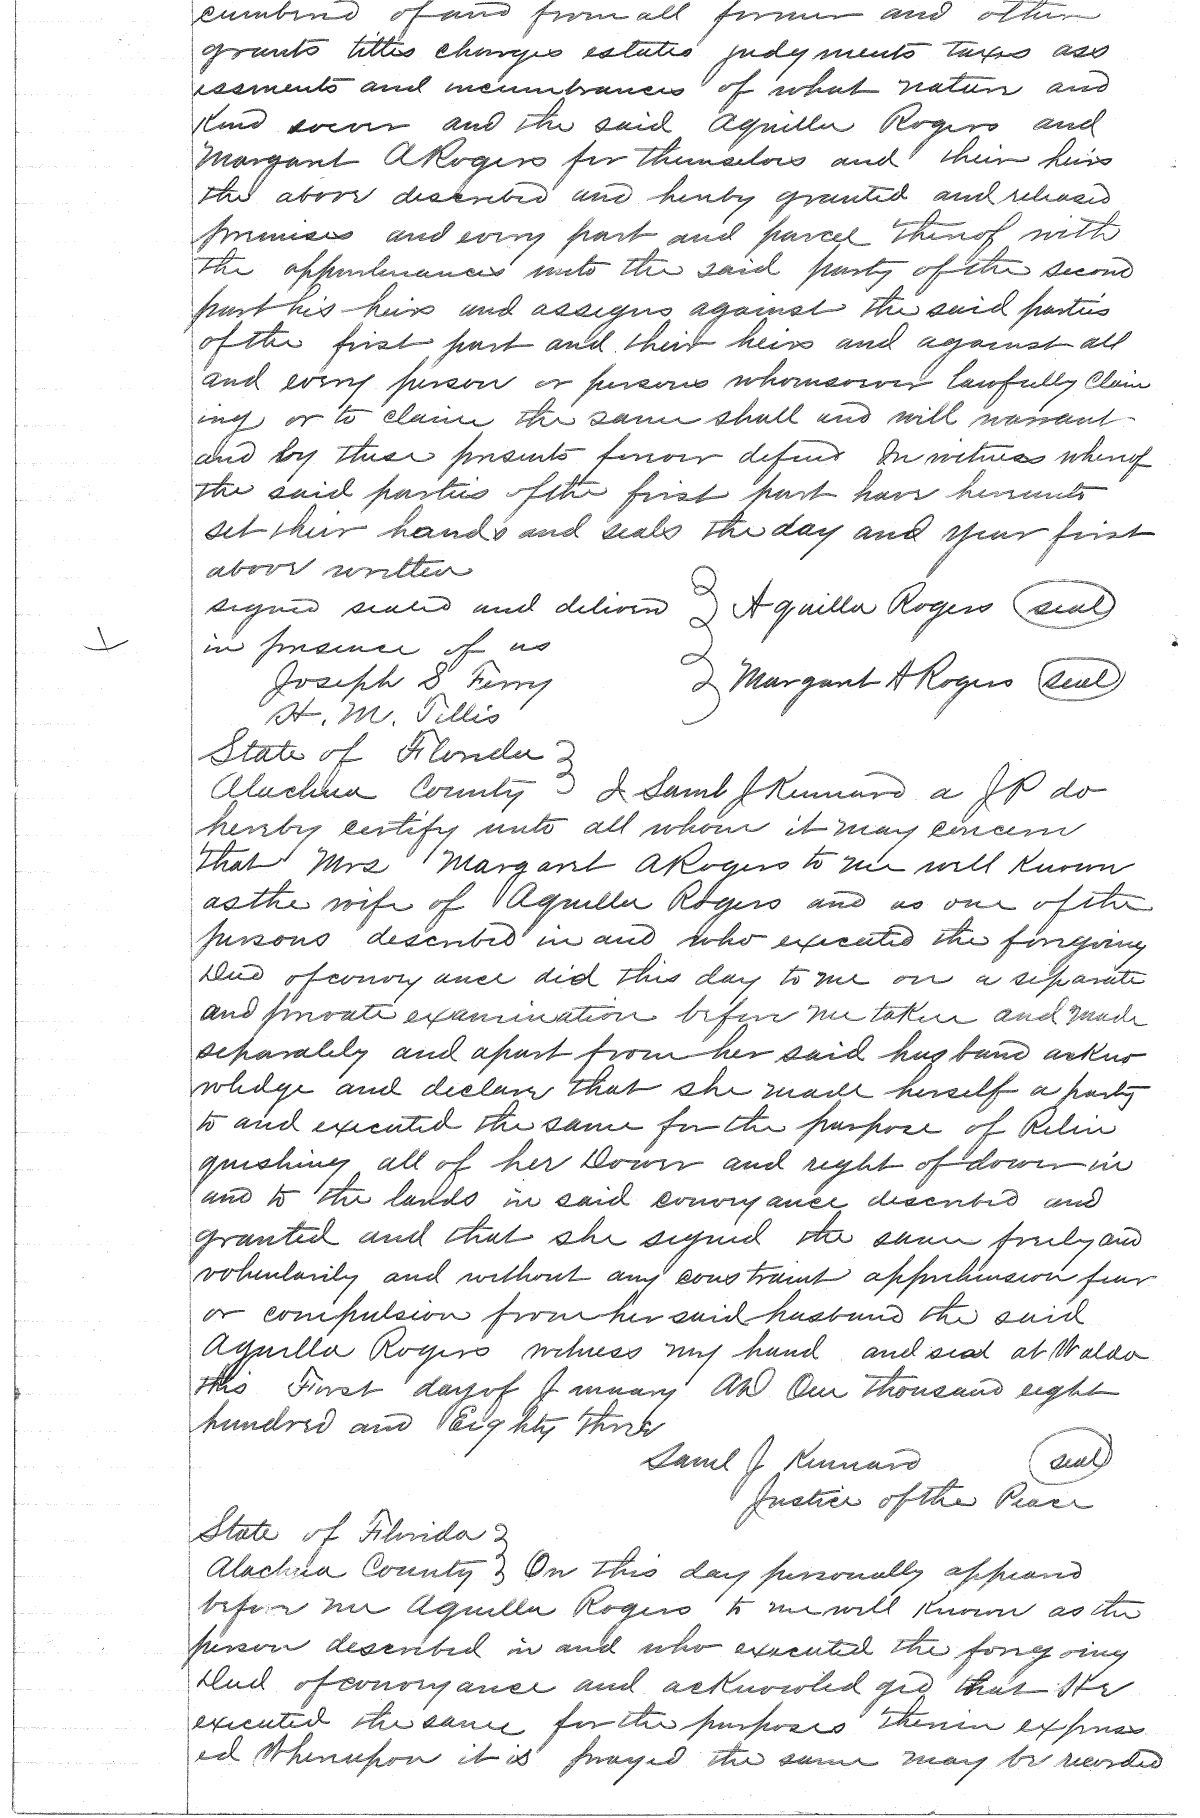 cumbered of and from all former and other
grants titles charges estates judgments taxes ass
essments and incumbrances of what nature and
Kind soever and the said Aquilla Rogers and
Margaret A Rogers for themselves and their heirs
the above described and hereby granted and released
premises and every part and parcel thereof with
the appurtenances unto the said party of the second
part his heirs and assigns against the said parties
of the first part and their heirs and against all
and every person or persons whomsoever lawfully Claim
ing or to claim the same shall and will warrant
and by these presents forever defend In witness whereof
the said parties of the first part have hereunto
set their hands and seals the day and year first
above written
signed sealed and deliverd } Aquilla Rogers (seal)
in presence of us
Joseph S Ferry } Margaret A Rogers (seal)
H. M. Tillis
State of Florida }
Alachua County } I Saml J Kennard a JP do
hereby certify unto all whom it may concern
that Mrs Margaret A Rogers to me well Known
as the wife of Aquilla Rogers and as one of the
persons described in and who executed the foregoing
Deed of conveyance did this day to me on a separate
and private examination before me taken and made
separately and apart from her said husband ackno
wledge and declare that she made herself a party
to and executed the same for the purpose of Relin
quishing all of her Dower and right of dower in
and to the lands in said conveyance described and
granted and that she signed the same freely and
voluntarily and without any constraint apprehension fear
or compulsion from her said husband the said
Aquilla Rogers witness my hand and seal at Waldo
this First day of January AD One thousand eight
hundred and Eighty three
Saml J Kennard (seal)
Justice of the Peace
State of Florida }
Alachua County } On this day personally appeared
before me Aquilla Rogers to me well Known as the
person described in and who executed the foregoing
Deed of conveyance and acknowledged that He
executed the same for the purposes therein express
ed Whereupon it is prayed the same may be recorded